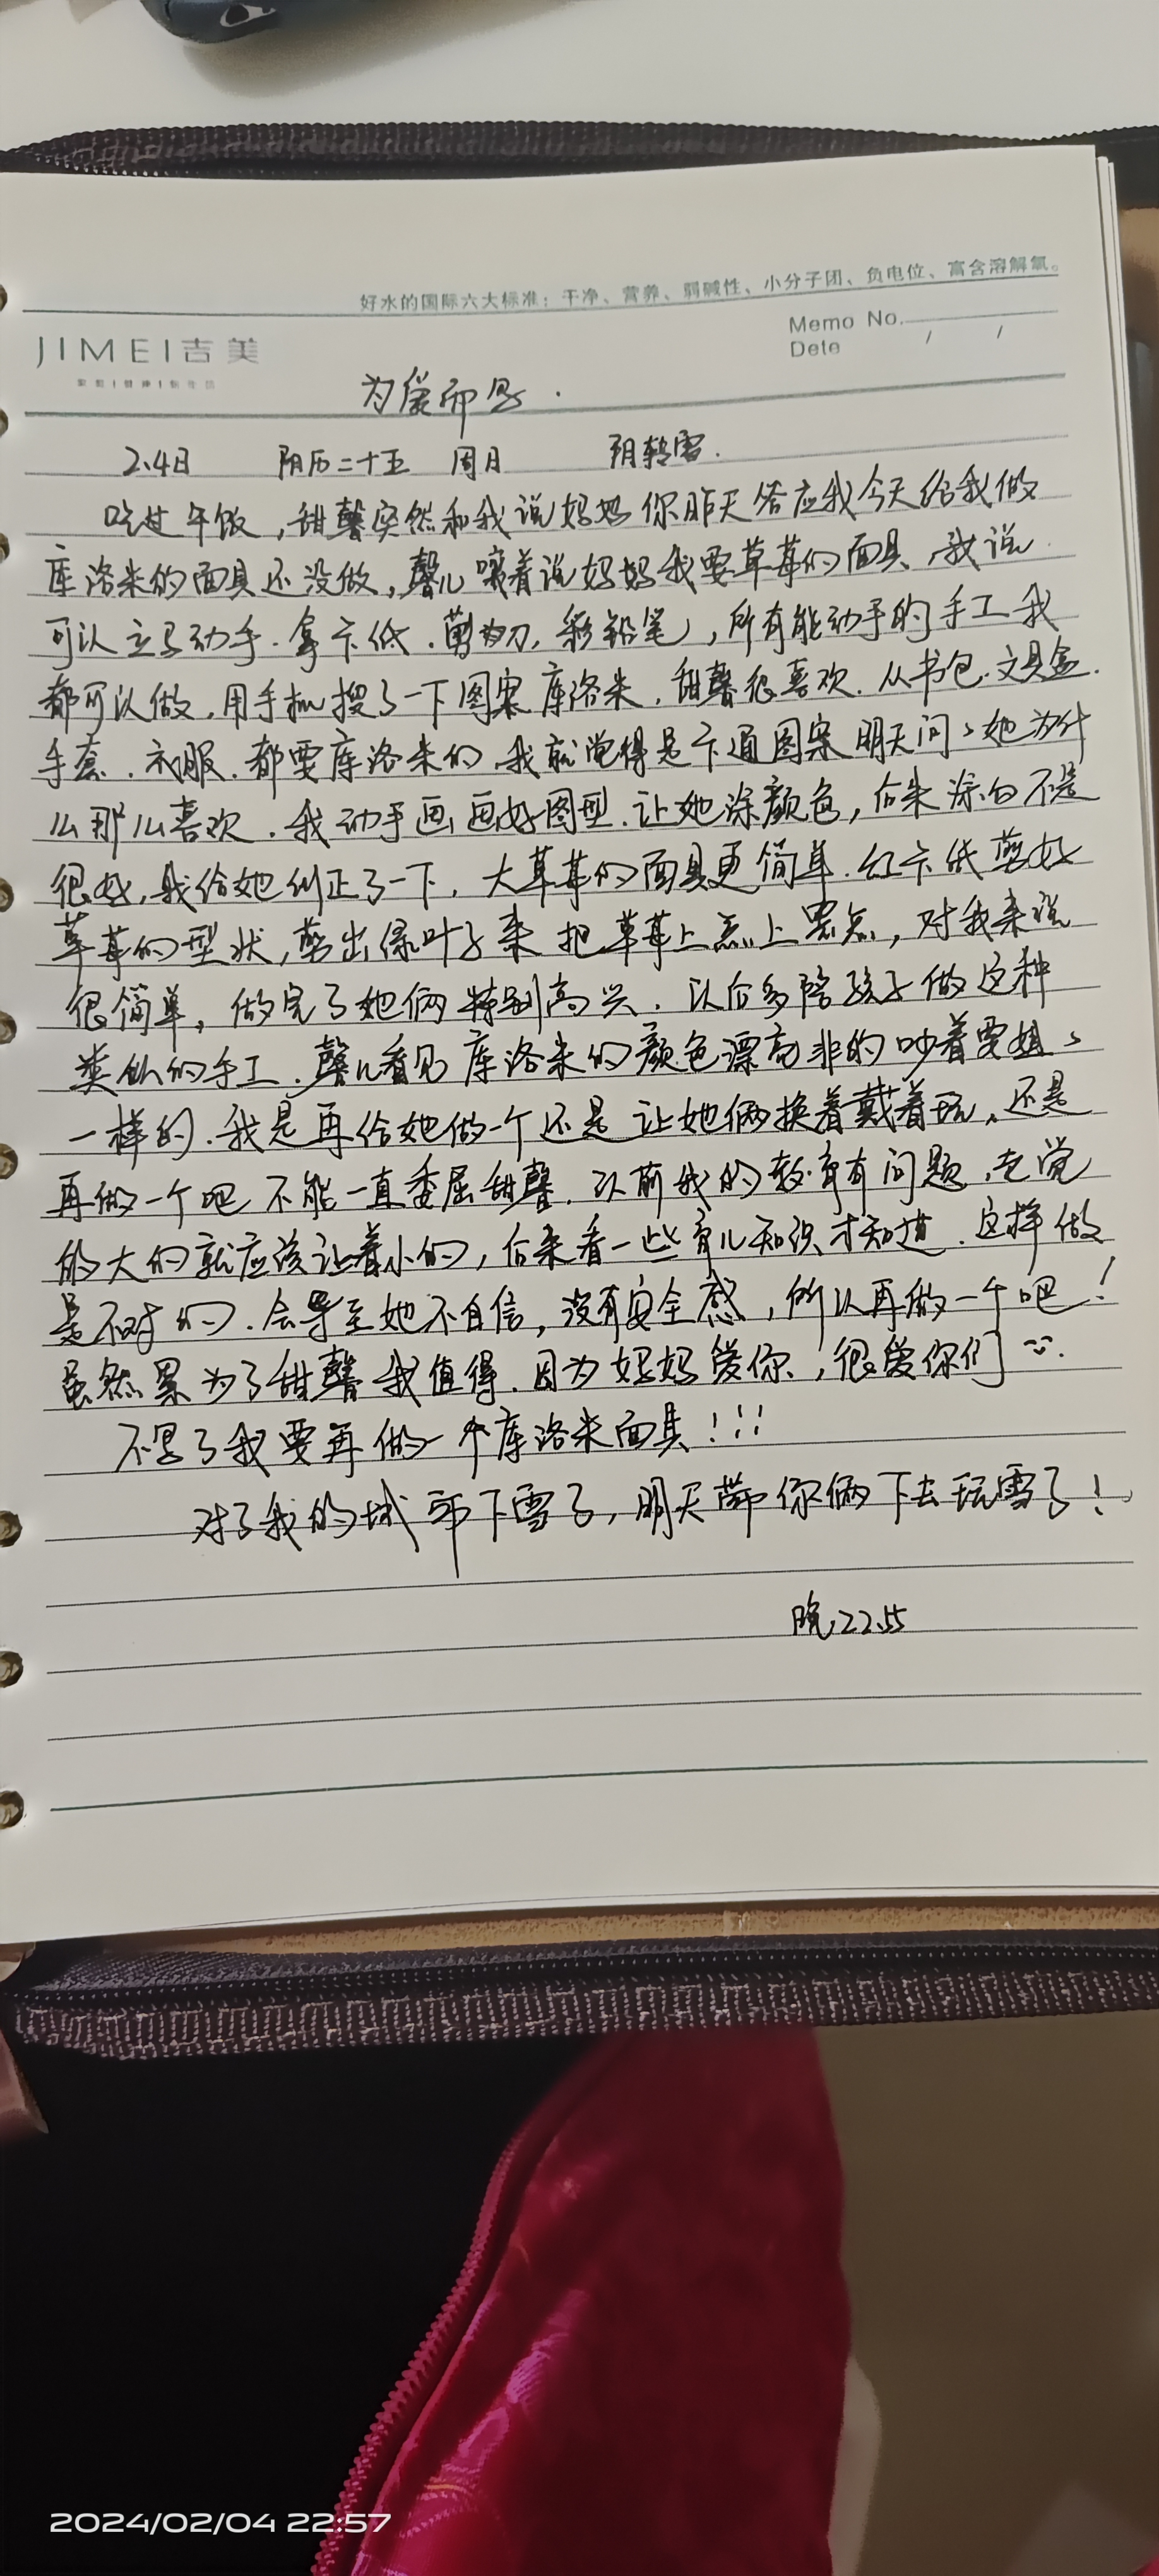 好水的国际六大标准：干净、营养、弱碱性、小分子团、负电位、富含溶解氧。
JIMEI吉美
Memo No.
Date / /
为爱而写.
2.4日 阴历二十五 周日 阴转雪.
吃过午饭，甜馨突然和我说妈妈你昨天答应我今天给我做
库洛米的面具还没做，馨儿嚷着说妈妈我要草莓的面具，我说
可以立马动手.拿卡纸.剪刀，彩铅笔，所有能动手的手工我
都可以做，用手机搜了一下图案库洛米，甜馨很喜欢.从书包.文具盒.
手套.衣服.都要库洛米的，我就觉得是卡通图案明天问、她为什
么那么喜欢.我动手画画好图型.让她涂颜色，后来涂的不是
很好，我给她纠正了一下，大草莓的面具更简单.红卡纸剪好
草莓的型状，剪出绿叶子来把草莓上点上黑点，对我来说
很简单，做完了她俩特别高兴.以后多陪孩子做这种
类似的手工.馨儿看见库洛米的颜色漂亮非的吵着要姐、
一样的.我是再给她做一个还是让她俩换着戴着玩，还是
再做一个吧不能一直委屈甜馨.以前我的教育有问题，老觉
的大的就应该让着小的，后来看一些育儿知识才知道.这样做
是不对的.会导至她不自信，没有安全感，所以再做一个吧！
虽然累为了甜馨我值得.因为妈妈爱你，很爱你们
不写了我要再做一个库洛米面具！！！
对了我的城市下雪了，明天带你俩下去玩雪了！
晚，22.55
2024/02/04 22:57